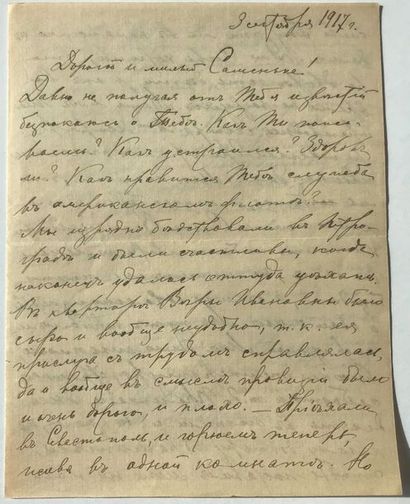 3 октября 1917 г.
Дорогой и милый Сашенька!
Давно не получая отъ Тебя извѣстій
безпокоюсь о Тебѣ. Какъ Ты пожи-
ваешь? Какъ устроился? Здоровъ
ли? Какъ нравится Тебѣ служба
въ американскомъ флотѣ?
Мы изрядно бѣдствовали въ Петро-
градѣ и были счастливы, когда
наконецъ удалось оттуда уѣхать.
Въ квартирѣ Вѣры Ивановны было
сыро и вообще неудобно, т. к. ея
прислуга съ трудомъ справлялась,
да и вообще въ смыслѣ провизіи было
и очень дорого, и плохо. — Пріѣхали
въ Севастополь, и теперь,
въ одной комнатѣ. Но